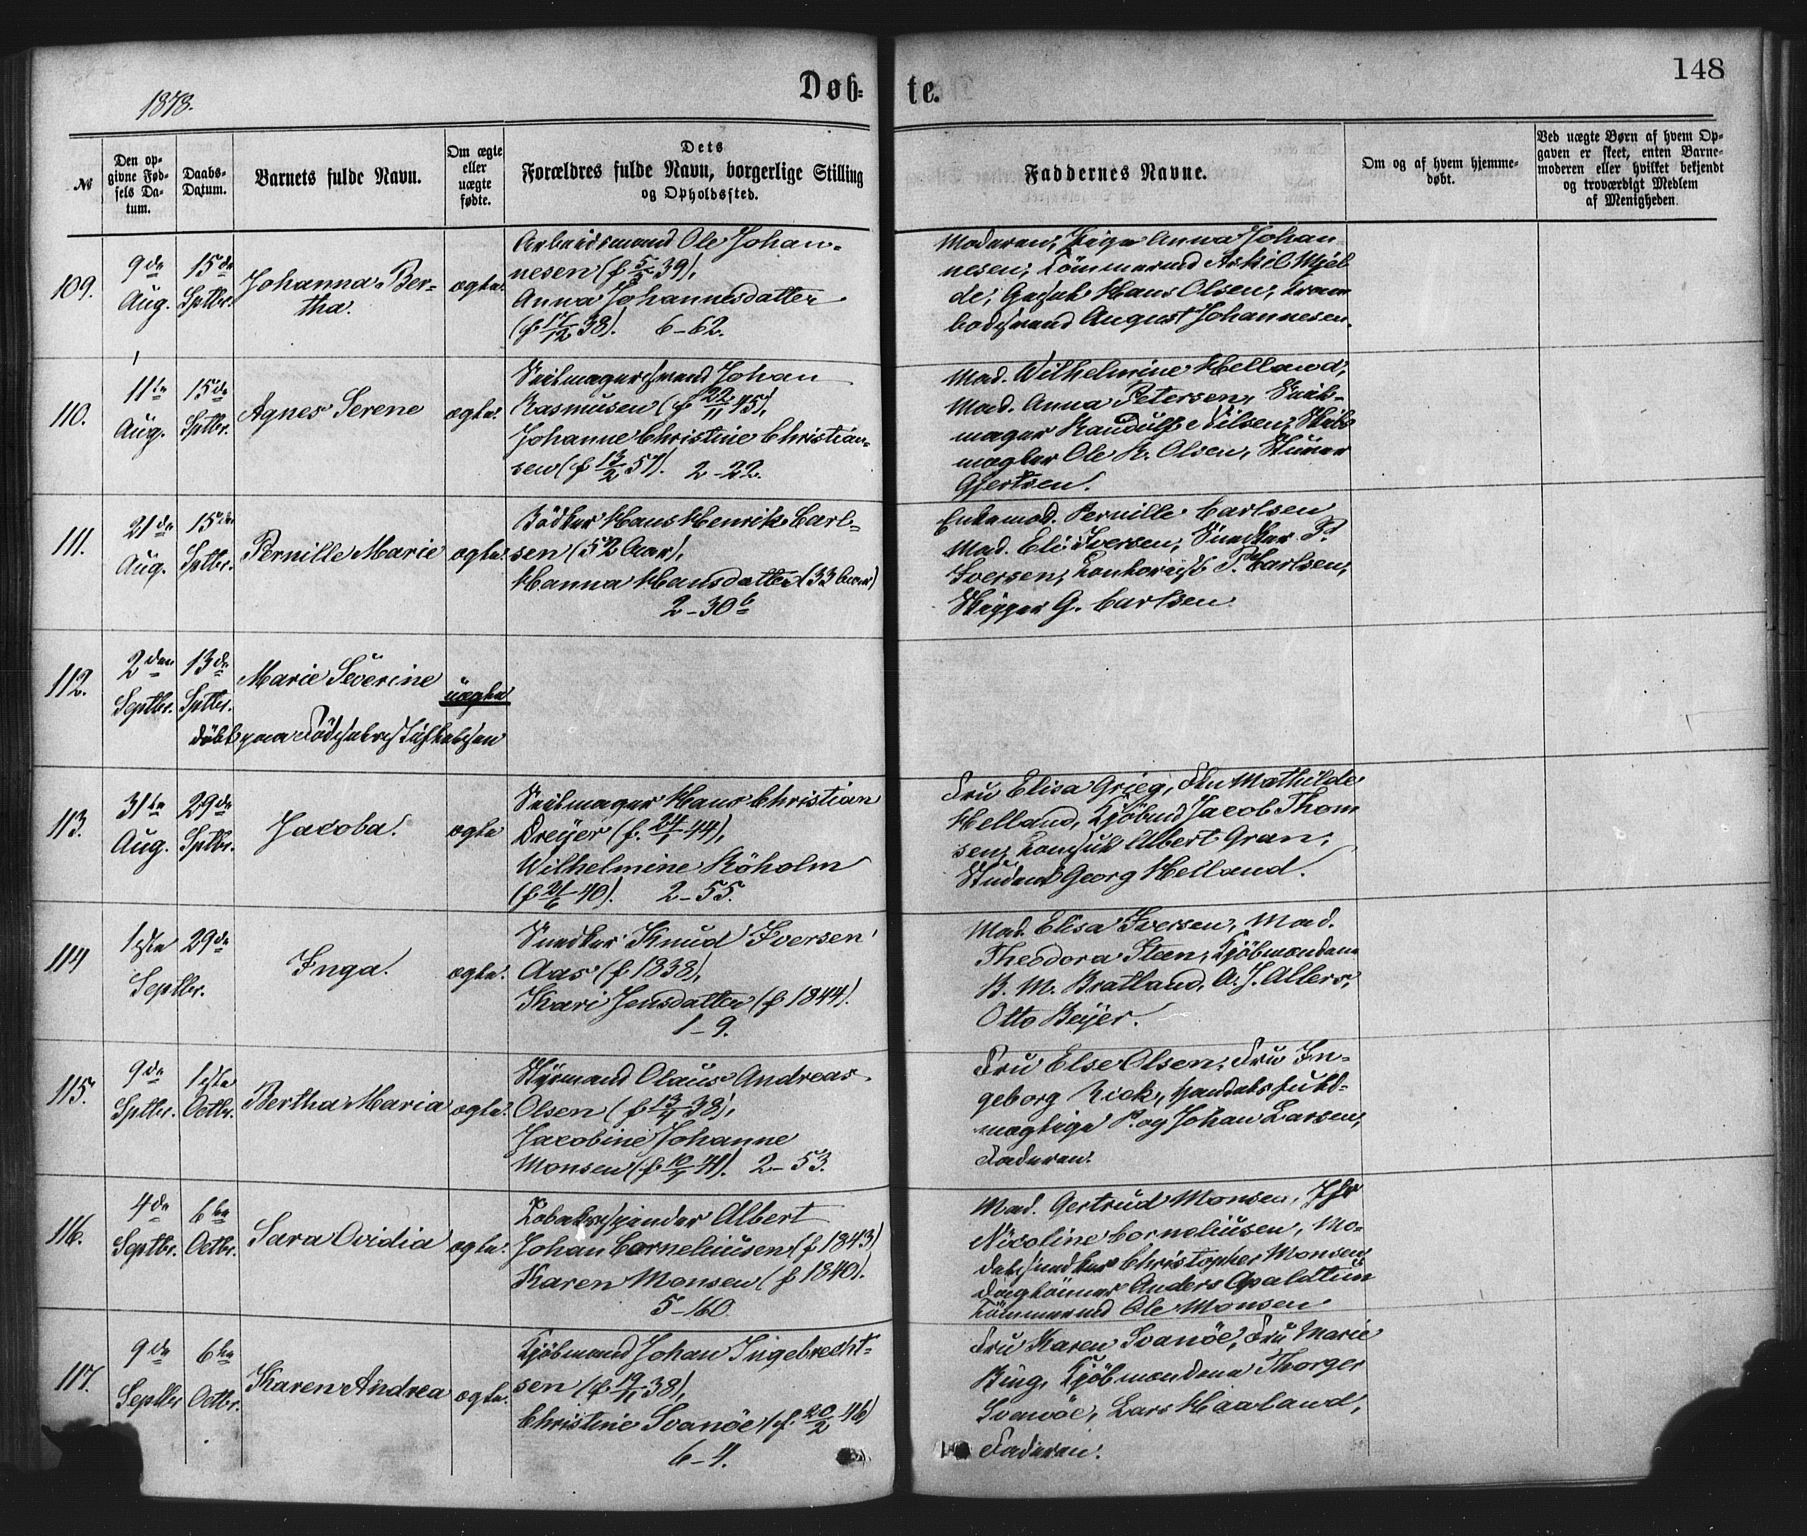 148
1878.
Døb- te.
№
Den op-
givne Fød-
sels Da-
tum.
Daabs-
Datum.
Barnets fulde Navn.
Om ægte
eller
uægte
fødte.
Dets
Forældres fulde Navn, borgerlige Stilling
og Opholdssted.
Faddernes Navne.
Om og af hvem hjemme-
døbt.
Ved uægte Børn af hvem Op-
gaven er skeet, enten Barne-
moderen eller hvilket bekjendt
og troværdigt Medlem
af Menigheden.
109.
9de
Aug.
15de
Sptbr.
Johanna Ber-
tha.
ægte.
Arbeidsmand Ole Johan-
nesen (f 5/3 39),
Anna Johannesdatter
(f. 17/12 38). 6-62.
Moderen; Pige Anna Johan
nesen; Tømmermd Askil Mjel
de; Gaspk Hans Olsen; Kram
bodsvend August Johannesen.
110.
11te
Aug.
15de
Sptbr.
Agnes Serene
ægte.
Seilmagersvend Johan
Rasmusen (f 22/11 45),
Johanne Christine Christian-
sen (f 13/2 57). 2-22.
Mad. Wilhelmine Helland;
Mad. Anna Petersen; Seil-
mager Randulf Nilsen; Skibs
mægler Ole R. Olsen; Stuer
Gjertsen.
111.
21de
Aug.
15de
Sptbr.
Pernille Marie
ægte.
Bødker Hans Henrik Carl-
sen (52 Aar),
Hanna Hansdatter (33 Aar)
2-30b
Enkemad. Pernille Carlsen
Mad. Eli Iversen; Snedker P.
Iversen; Kontorist P. Carlsen;
Skipper G. Carlsen.
112.
2den
Septbr.
13de
Sptbr.
Marie Severine
uægte
døbt paa Fødselsstiftelsen
113.
31te
Aug.
29de
Sptbr.
Jacoba.
ægte
Seilmager Hans Christian
Dreyer (f. 24/1 44),
Wilhelmine Røholm
(f 21/6 40). 2-55.
Fru Elisa Grieg, Frk Mathilde
Helland, Kjøbmd Jacob Thom
sen; Konsul Albert Gran;
Student Georg Helland.
114
1ste
Septbr.
29de
Inga.
ægte.
Snedker Knud Iversen
Aas (f 1838),
Kari Jensdatter (f 1844).
1-9.
Mad. Elisa Iversen, Mad.
Theodora Steen; Kjøbmændene
B. M. Bratland, A. J. Albers,
Otto Beyer.
115.
9de
Sptbr.
1ste
Octbr.
Bertha Maria
ægte.
Styrmand Olaus Andreas
Olsen (f 13/7 38),
Jacobine Johanne
Monsen (f. 10/7 41). 2-53.
Fru Else Olsen; Fru In-
geborg Rick, Handelsfuld-
mægtige P. og Johan Larsen,
Faderen.
116.
4de
Septbr.
6te
Octbr.
Sara Ovidia
ægte.
Tobaksspinder Albert
Johan Corneliusen (f 1843)
Karen Monsen (f 1840).
5-160.
Mad. Gertrud Monsen, Jfr
Nicoline Corneliusen, Mo-
delsnedker Christopher Monsen,
Anders Apaldtun
Tømmermd Ole Monsen
117.
9de
Septbr
6te
Octbr.
Karen Andrea
ægte.
Kjøbmand Johan Ingebrecht-
sen (f. 19/4 38),
Christine Svanøe (f. 20/2 46)
6-4.
Fru Karen Svanøe, Fru Marie
Bing, Kjøbmændene Thorger
Svanøe, Lars Haaland,
Faderen.